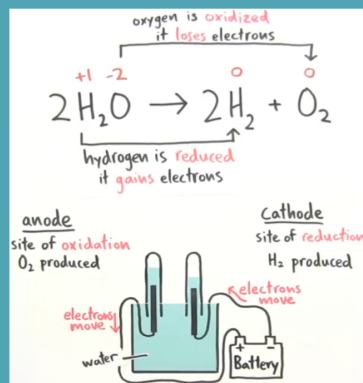 oxygen is oxidized
it loses electrons
+1 -2 0 0
2H₂O → 2H₂ + O₂
hydrogen is reduced
it gains electrons
anode
site of oxidation
O₂ produced
Cathode
site of reduction
H₂ produced
electrons
move
electrons
move
water
+ -
Battery